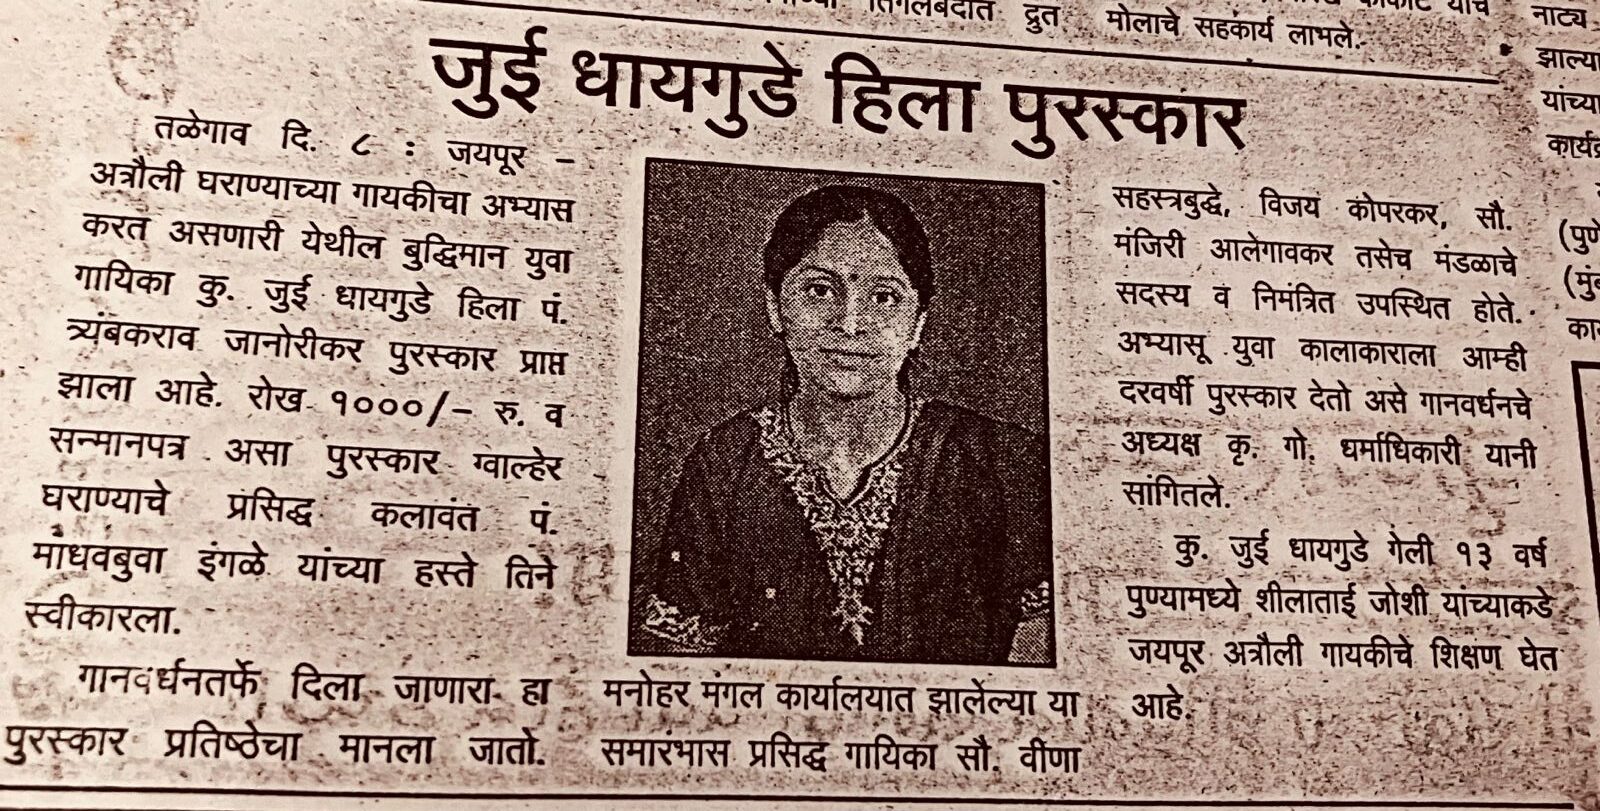 द्रुत
मोलाचे सहकार्य लाभले.
जुई धायगुडे हिला पुरस्कार
तळेगाव दि. ८ : जयपूर -
अत्रौली घराण्याच्या गायकीचा अभ्यास
करत असणारी येथील बुद्धिमान युवा
गायिका कु. जुई धायगुडे हिला पं.
त्र्यंबकराव जानोरीकर पुरस्कार प्राप्त
झाला आहे. रोख १०००/- रु. व
सन्मानपत्र असा पुरस्कार ग्वाल्हेर
घराण्याचे प्रसिद्ध कलावंत पं.
माधवबुवा इंगळे यांच्या हस्ते तिने
स्वीकारला.
गानवर्धनतर्फे दिला जाणारा हा
पुरस्कार प्रतिष्ठेचा मानला जातो.
मनोहर मंगल कार्यालयात झालेल्या या
समारंभास प्रसिद्ध गायिका सौ. वीणा
सहस्त्रबुद्धे, विजय कोपरकर, सौ.
मंजिरी आलेगावकर तसेच मंडळाचे
सदस्य व निमंत्रित उपस्थित होते.
अभ्यासू युवा कालाकाराला आम्ही
दरवर्षी पुरस्कार देतो असे गानवर्धनचे
अध्यक्ष कृ. गो. धर्माधिकारी यानी
सांगितले.
कु. जुई धायगुडे गेली १३ वर्ष
पुण्यामध्ये शीलाताई जोशी यांच्याकडे
जयपूर अत्रौली गायकीचे शिक्षण घेत
आहे.
नाट्य